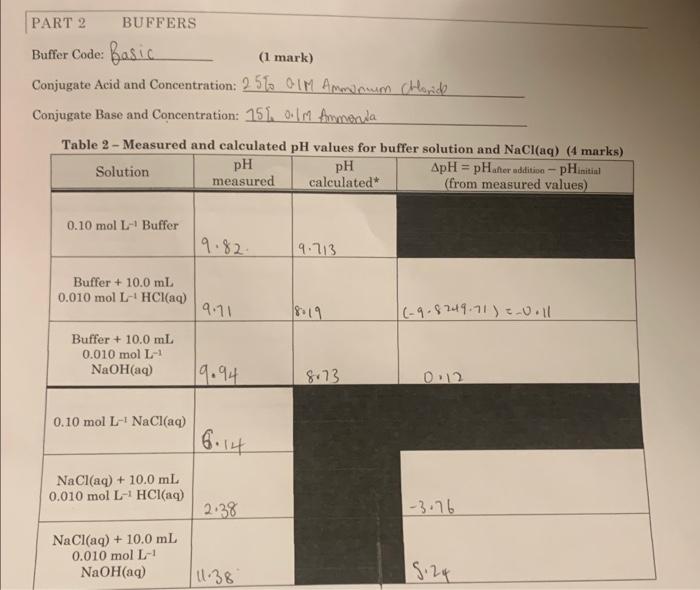 PART 2 BUFFERS
Buffer Code: Basic (1 mark)
Conjugate Acid and Concentration: 25% 0.1M Ammonium Chloride
Conjugate Base and Concentration: 75% 0.1M Ammonia
Table 2 – Measured and calculated pH values for buffer solution and NaCl(aq) (4 marks)
Solution pH measured pH calculated* ΔpH = pHafter addition – pHinitial (from measured values)
0.10 mol L⁻¹ Buffer 9.82 9.713
Buffer + 10.0 mL
0.010 mol L⁻¹ HCl(aq) 9.71 8.19 (-9.82+9.71) = -0.11
Buffer + 10.0 mL
0.010 mol L⁻¹
NaOH(aq) 9.94 8.73 0.12
0.10 mol L⁻¹ NaCl(aq) 6.14
NaCl(aq) + 10.0 mL
0.010 mol L⁻¹ HCl(aq) 2.38 -3.76
NaCl(aq) + 10.0 mL
0.010 mol L⁻¹
NaOH(aq) 11.38 5.24